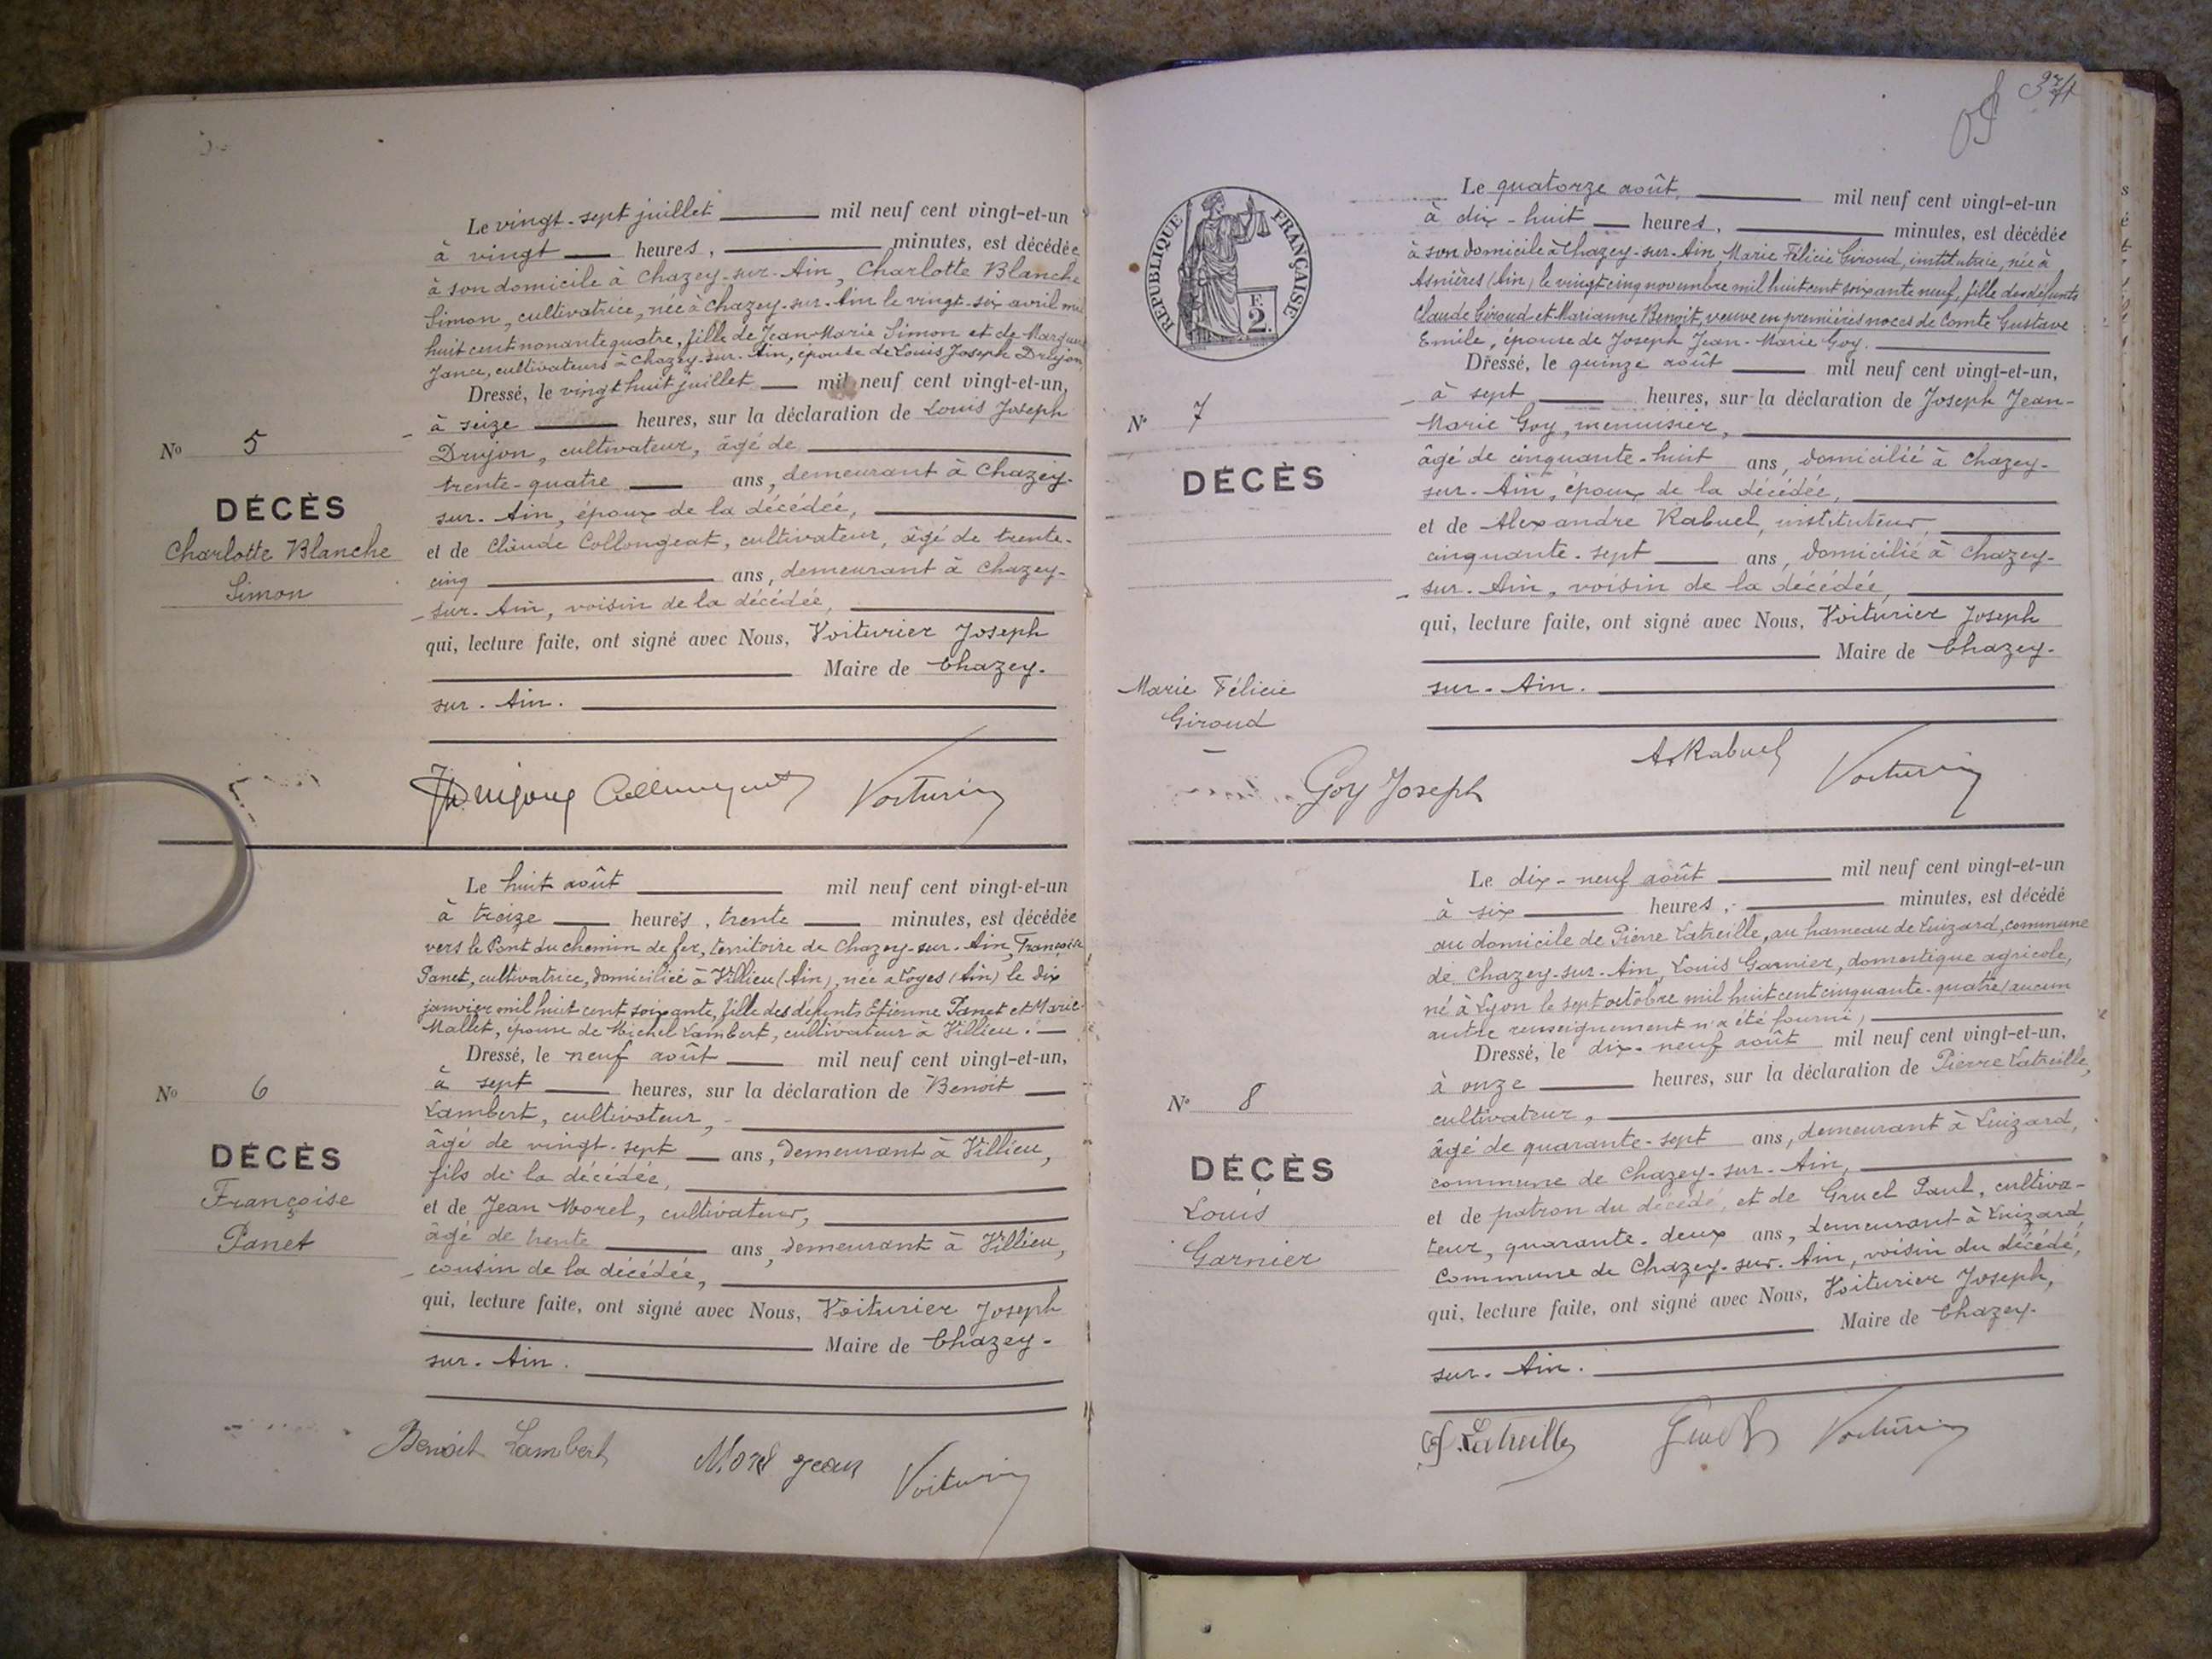 Le vingt-sept juillet mil neuf cent vingt-et-un
à vingt heures, minutes, est décédée
à son domicile à Chazey-sur-Ain, Charlotte Blanche
Simon, cultivatrice, née à Chazey-sur-Ain le vingt-six avril mil
huit cent nonante quatre, fille de Jean-Marie Simon et de
cultivateurs à Chazey-sur-Ain, épouse de Louis Joseph Drujon
Dressé, le vingt huit juillet mil neuf cent vingt-et-un,
à seize heures, sur la déclaration de Louis Joseph
Nº 5
Drujon, cultivateur, âgé de
trente-quatre ans, demeurant à Chazey-
DÉCÈS
sur-Ain, époux de la décédée,
Charlotte Blanche
Simon
et de Claude Collongeat, cultivateur, âgé de trente-
cinq ans, demeurant à Chazey-
sur-Ain, voisin de la décédée,
qui, lecture faite, ont signé avec Nous, Voiturier Joseph
Maire de Chazey-
sur-Ain.
Voiturier
Le huit août mil neuf cent vingt-et-un
à treize heures, trente minutes, est décédée
vers le Pont du chemin de fer, territoire de Chazey-sur-Ain, Françoise
Panet, cultivatrice, domiciliée à Villieu (Ain), née à Loyes (Ain) le dix
janvier mil huit cent soixante, fille des défunts Etienne Panet et Marie
Mallet, épouse de Michel Lambert, cultivateur à Villieu.
Dressé, le neuf août mil neuf cent vingt-et-un,
à sept heures, sur la déclaration de Benoit
Nº 6
Lambert, cultivateur,
âgé de vingt-sept ans, demeurant à Villieu,
DÉCÈS
fils de la décédée,
Françoise
Panet
et de Jean Morel, cultivateur,
âgé de trente ans, demeurant à Villieu,
cousin de la décédée,
qui, lecture faite, ont signé avec Nous, Voiturier Joseph
Maire de Chazey-
sur-Ain.
Benoit Lambert Morel Jean Voiturier
RÉPUBLIQUE FRANÇAISE
F.
2.
Le quatorze août, mil neuf cent vingt-et-un
à dix-huit heures, minutes, est décédée
à son domicile à Chazey-sur-Ain, Marie Félicie Giroud, institutrice, née à
Asnières (Ain) le vingt cinq novembre mil huit cent soixante neuf, fille des défunts
Claude Giroud et Marianne Benoit, veuve en premières noces de Comte Gustave
Emile, épouse de Joseph Jean-Marie Goy.
Dressé, le quinze août mil neuf cent vingt-et-un,
à sept heures, sur la déclaration de Joseph Jean-
Nº 7
Marie Goy, menuisier,
âgé de cinquante-huit ans, domicilié à Chazey-
DÉCÈS
sur-Ain, époux de la décédée,
et de Alexandre Rabuel, instituteur,
cinquante-sept ans, domicilié à Chazey-
sur-Ain, voisin de la décédée,
qui, lecture faite, ont signé avec Nous, Voiturier Joseph
Maire de Chazey-
Marie Félicie
Giroud
sur-Ain.
Goy Joseph A. Rabuel Voiturier
Le dix-neuf août mil neuf cent vingt-et-un
à six heures, minutes, est décédé
au domicile de Pierre Latreille, au hameau de Luizard, commune
de Chazey-sur-Ain, Louis Garnier, domestique agricole,
né à Lyon le sept octobre mil huit cent cinquante-quatre (aucun
autre renseignement n'a été fourni)
Dressé, le dix-neuf août mil neuf cent vingt-et-un,
à onze heures, sur la déclaration de Pierre Latreille,
Nº 8
cultivateur,
âgé de quarante-sept ans, demeurant à Luizard,
DÉCÈS
commune de Chazey-sur-Ain,
Louis
Garnier
et de patron du décédé, et de Gruel Paul, cultiva-
teur, quarante-deux ans, demeurant à Luizard
Commune de Chazey-sur-Ain, voisin du décédé,
qui, lecture faite, ont signé avec Nous, Voiturier Joseph,
Maire de Chazey-
sur-Ain.
Latreille Gruel Voiturier